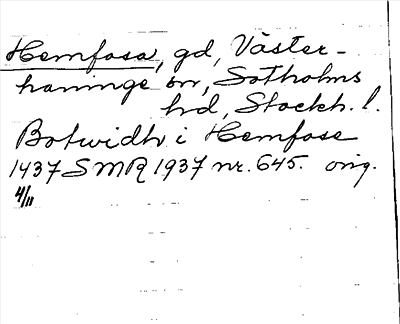 Hemfosa, gd, Väster-
haninge sn, Sotholms
hd, Stockh. l.
Botwidh i Hemfose
1437 SMR 1937 nr. 645. orig.
4/11